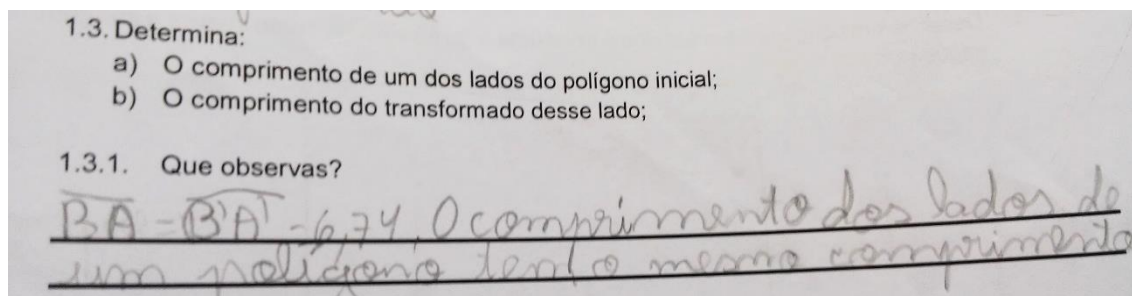 1.3. Determina:
a) O comprimento de um dos lados do polígono inicial;
b) O comprimento do transformado desse lado;
1.3.1. Que observas?
BA = B'A' = 6,74. O comprimento dos lados de
um polígono tem o mesmo comprimento